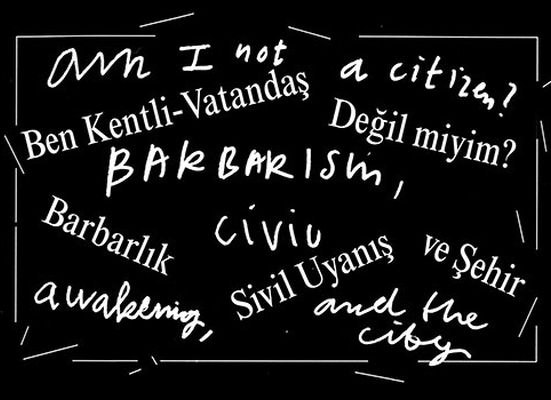 am I not a citizen?
Ben Kentli-Vatandaş Değil miyim?
BARBARISM,
Barbarlık
civic
Sivil Uyanış ve Şehir
awakening,
and the
city